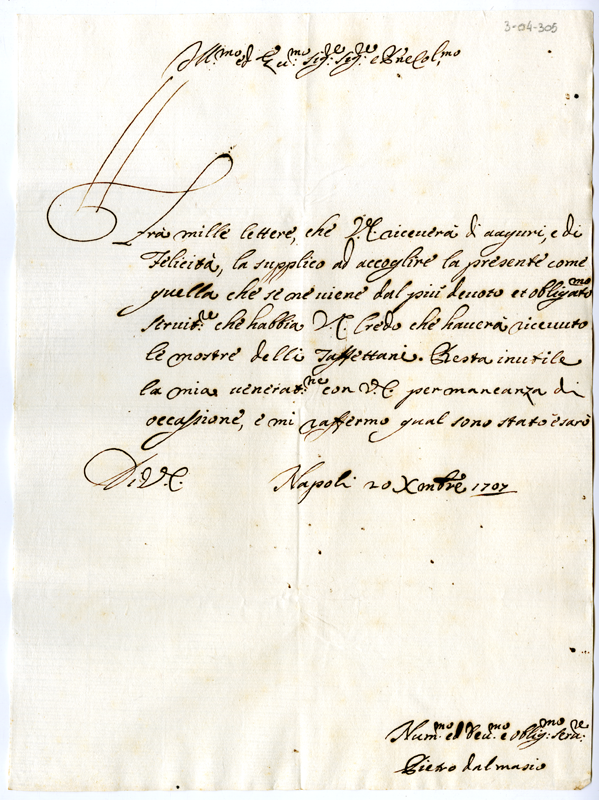 3-04-305
Ill.mo ed Ecc.mo Sig.re Sig.re e P.ne Col.mo
Frà mille lettere, che V.E. riceuerà di auguri, e di
Felicità, la supplico ad accoglire la presente come
quella che se ne uiene dal più deuoto et obligato.mo
seruit.re che habbia V.E. Credo che hauerà riceuuto
le mostre delli Taffettani. Resta inutile
la mia venerat.ne con V.E. per mancanza di
occassione, e mi raffermo qual sono stato e sarò
Di V.E. Napoli 20 Xmbre 1707
Hum.mo ed Deu.mo e oblig.mo seru.re
Pietro dalmasio